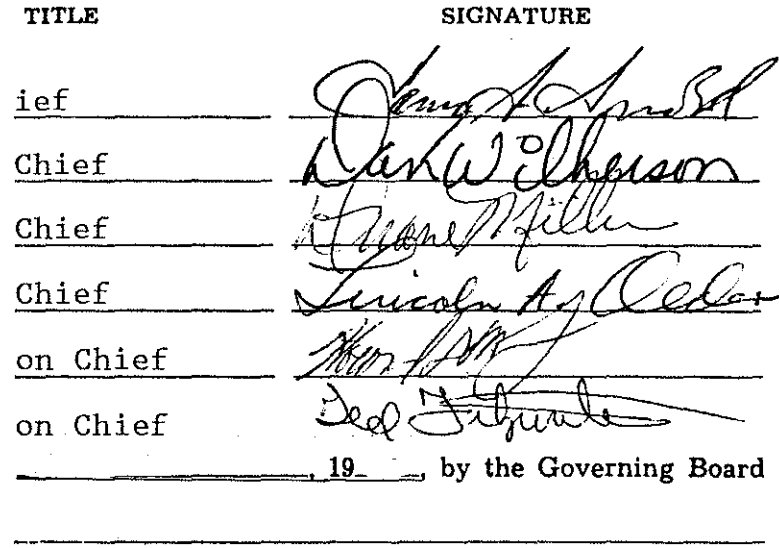 TITLE SIGNATURE
ief
Chief Dan Wilkerson
Chief Duane Miller
Chief Lincoln
on Chief
on Chief Ted
, 19_ _, by the Governing Board